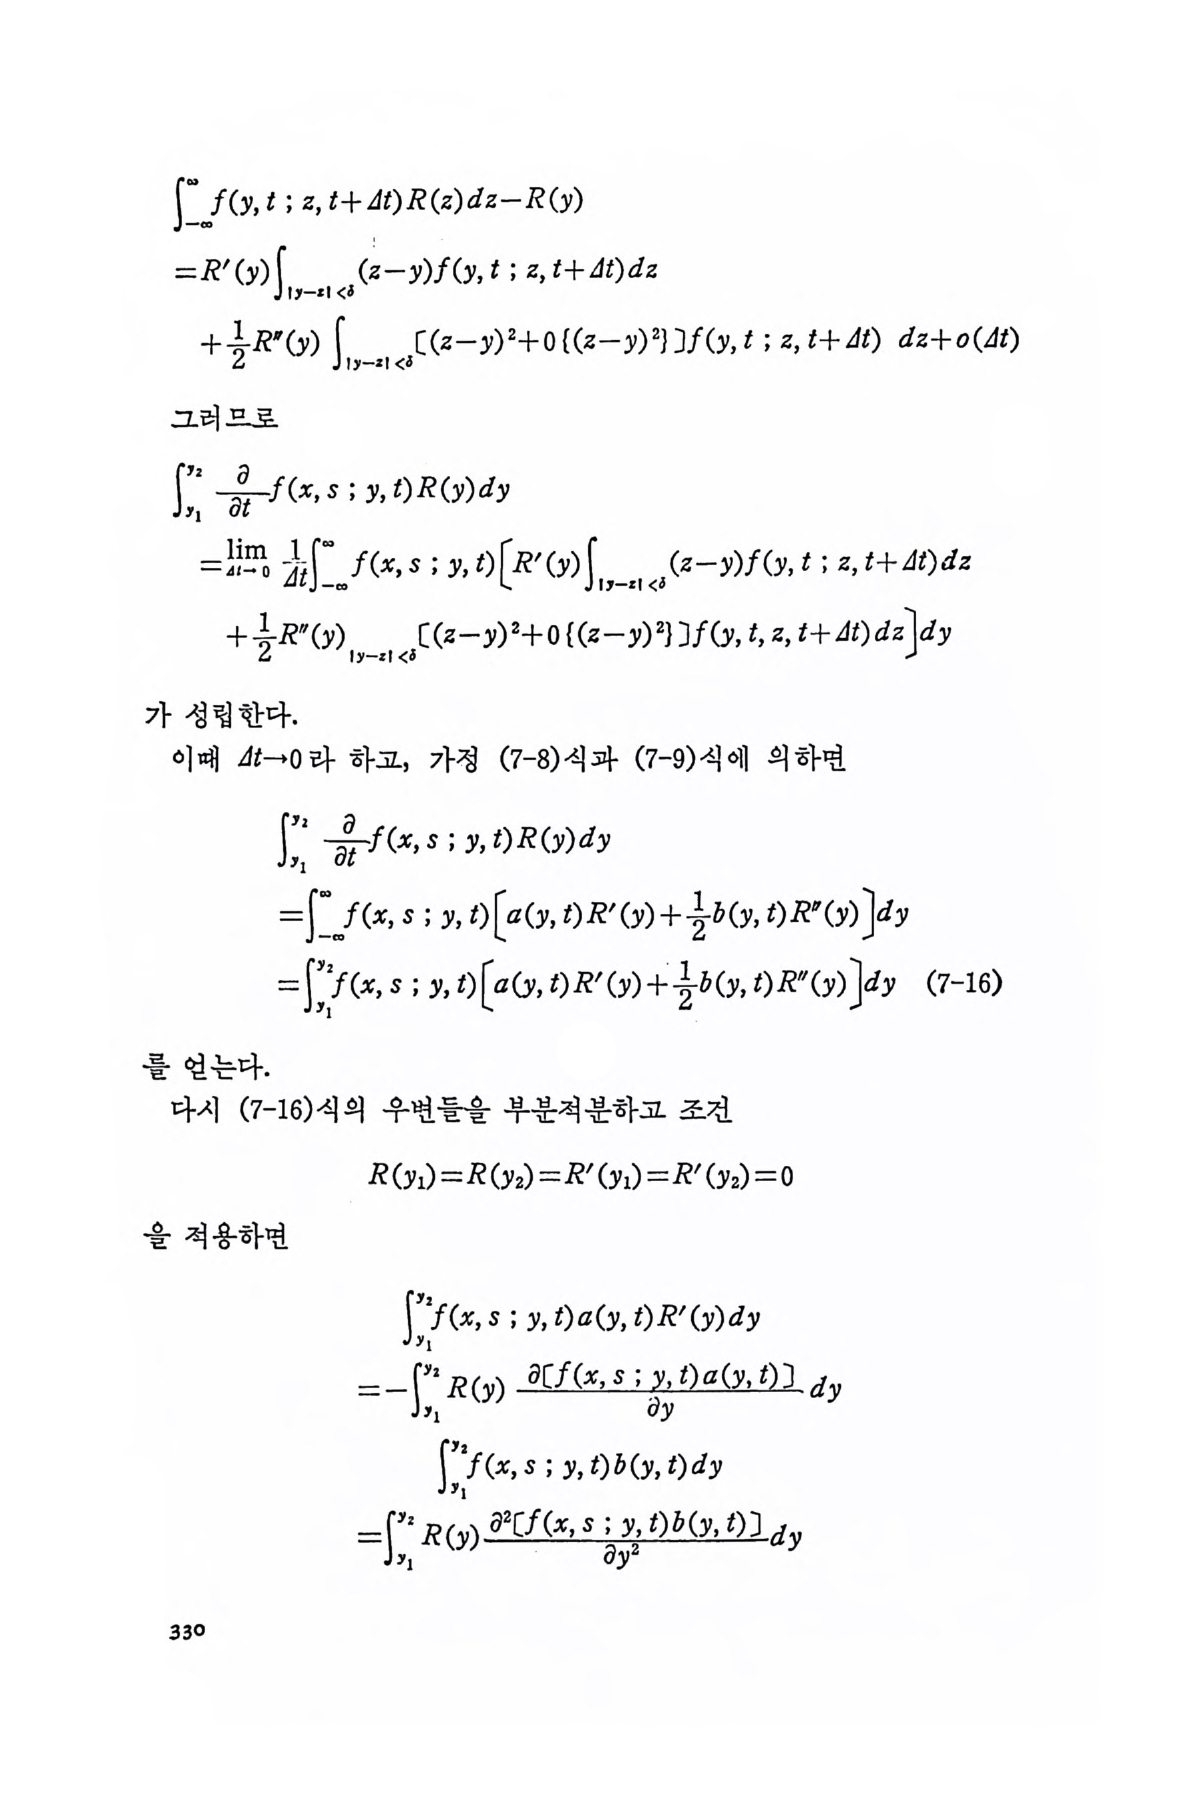 ∫_{-∞}^{∞} f(y, t ; z, t+Δt)R(z)dz−R(y)
=R′(y)∫_{|y−z|<δ}(z−y)f(y, t ; z, t+Δt)dz
+\frac{1}{2}R″(y) ∫_{|y−z|<δ}[(z−y)²+0{(z−y)²}]f(y, t ; z, t+Δt) dz+o(Δt)
그러므로
∫_{y₁}^{y₂} \frac{∂}{∂t}f(x, s ; y, t)R(y)dy
=\lim_{Δt→0} \frac{1}{Δt}∫_{-∞}^{∞} f(x, s ; y, t)[R′(y)∫_{|y−z|<δ}(z−y)f(y, t ; z, t+Δt)dz
+\frac{1}{2}R″(y)_{|y−z|<δ}[(z−y)²+0{(z−y)²}]f(y, t, z, t+Δt)dz]dy
가 성립한다.
이때 Δt→0라 하고, 가정 (7-8)식과 (7-9)식에 의하면
∫_{y₁}^{y₂} \frac{∂}{∂t}f(x, s ; y, t)R(y)dy
=∫_{-∞}^{∞} f(x, s ; y, t)[a(y, t)R′(y)+\frac{1}{2}b(y, t)R″(y)]dy
=∫_{y₁}^{y₂}f(x, s ; y, t)[a(y, t)R′(y)+\frac{1}{2}b(y, t)R″(y)]dy (7-16)
를 얻는다.
다시 (7-16)식의 우변들을 부분적분하고 조건
R(y₁)=R(y₂)=R′(y₁)=R′(y₂)=0
을 적용하면
∫_{y₁}^{y₂}f(x, s ; y, t)a(y, t)R′(y)dy
=−∫_{y₁}^{y₂} R(y) \frac{∂[f(x, s ; y, t)a(y, t)]}{∂y} dy
∫_{y₁}^{y₂}f(x, s ; y, t)b(y, t)dy
=∫_{y₁}^{y₂} R(y)\frac{∂²[f(x, s ; y, t)b(y, t)]}{∂y²}dy
330